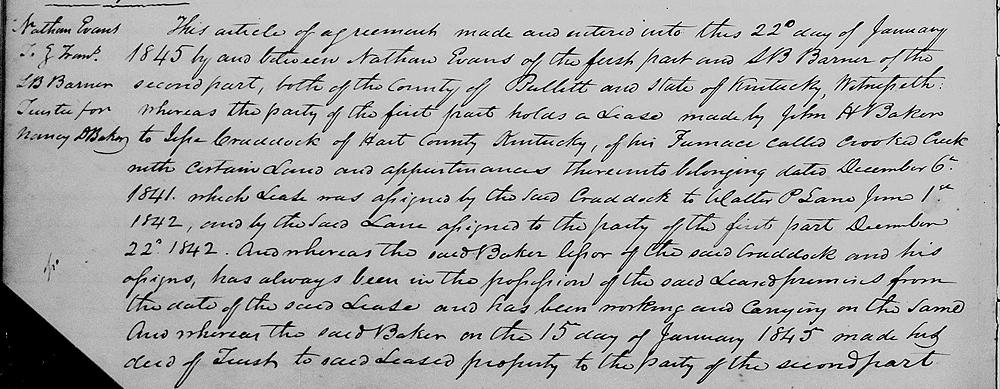 Nathan Evans
To
S B Barner
Trustee for
Nancy D Baker
This article of agreement made and entered into this 22d day of January
1845 by and between Nathan Evans of the first part and S B Barner of the
second part, both of the County of Bullitt and State of Kentucky, Witnesseth:
whereas the party of the first part holds a Lease made by John H Baker
to Jesse Craddock of Hart County Kentucky, of his Furnace called Crooked Creek
with certain Land and appurtinances thereunto belonging dated December 6th
1841. which Lease was assigned by the said Craddock to Walter P Lane June 1st
1842, and by the said Lane assigned to the party of the first part December
22d 1842. And whereas the said Baker lessor of the said Craddock and his
assigns, has always been in the possession of the said Leased premises from
the date of the said Lease and has been working and carrying on the same
And whereas the said Baker on the 15 day of January 1845 made his
deed of Trust to said Leased property to the party of the second part